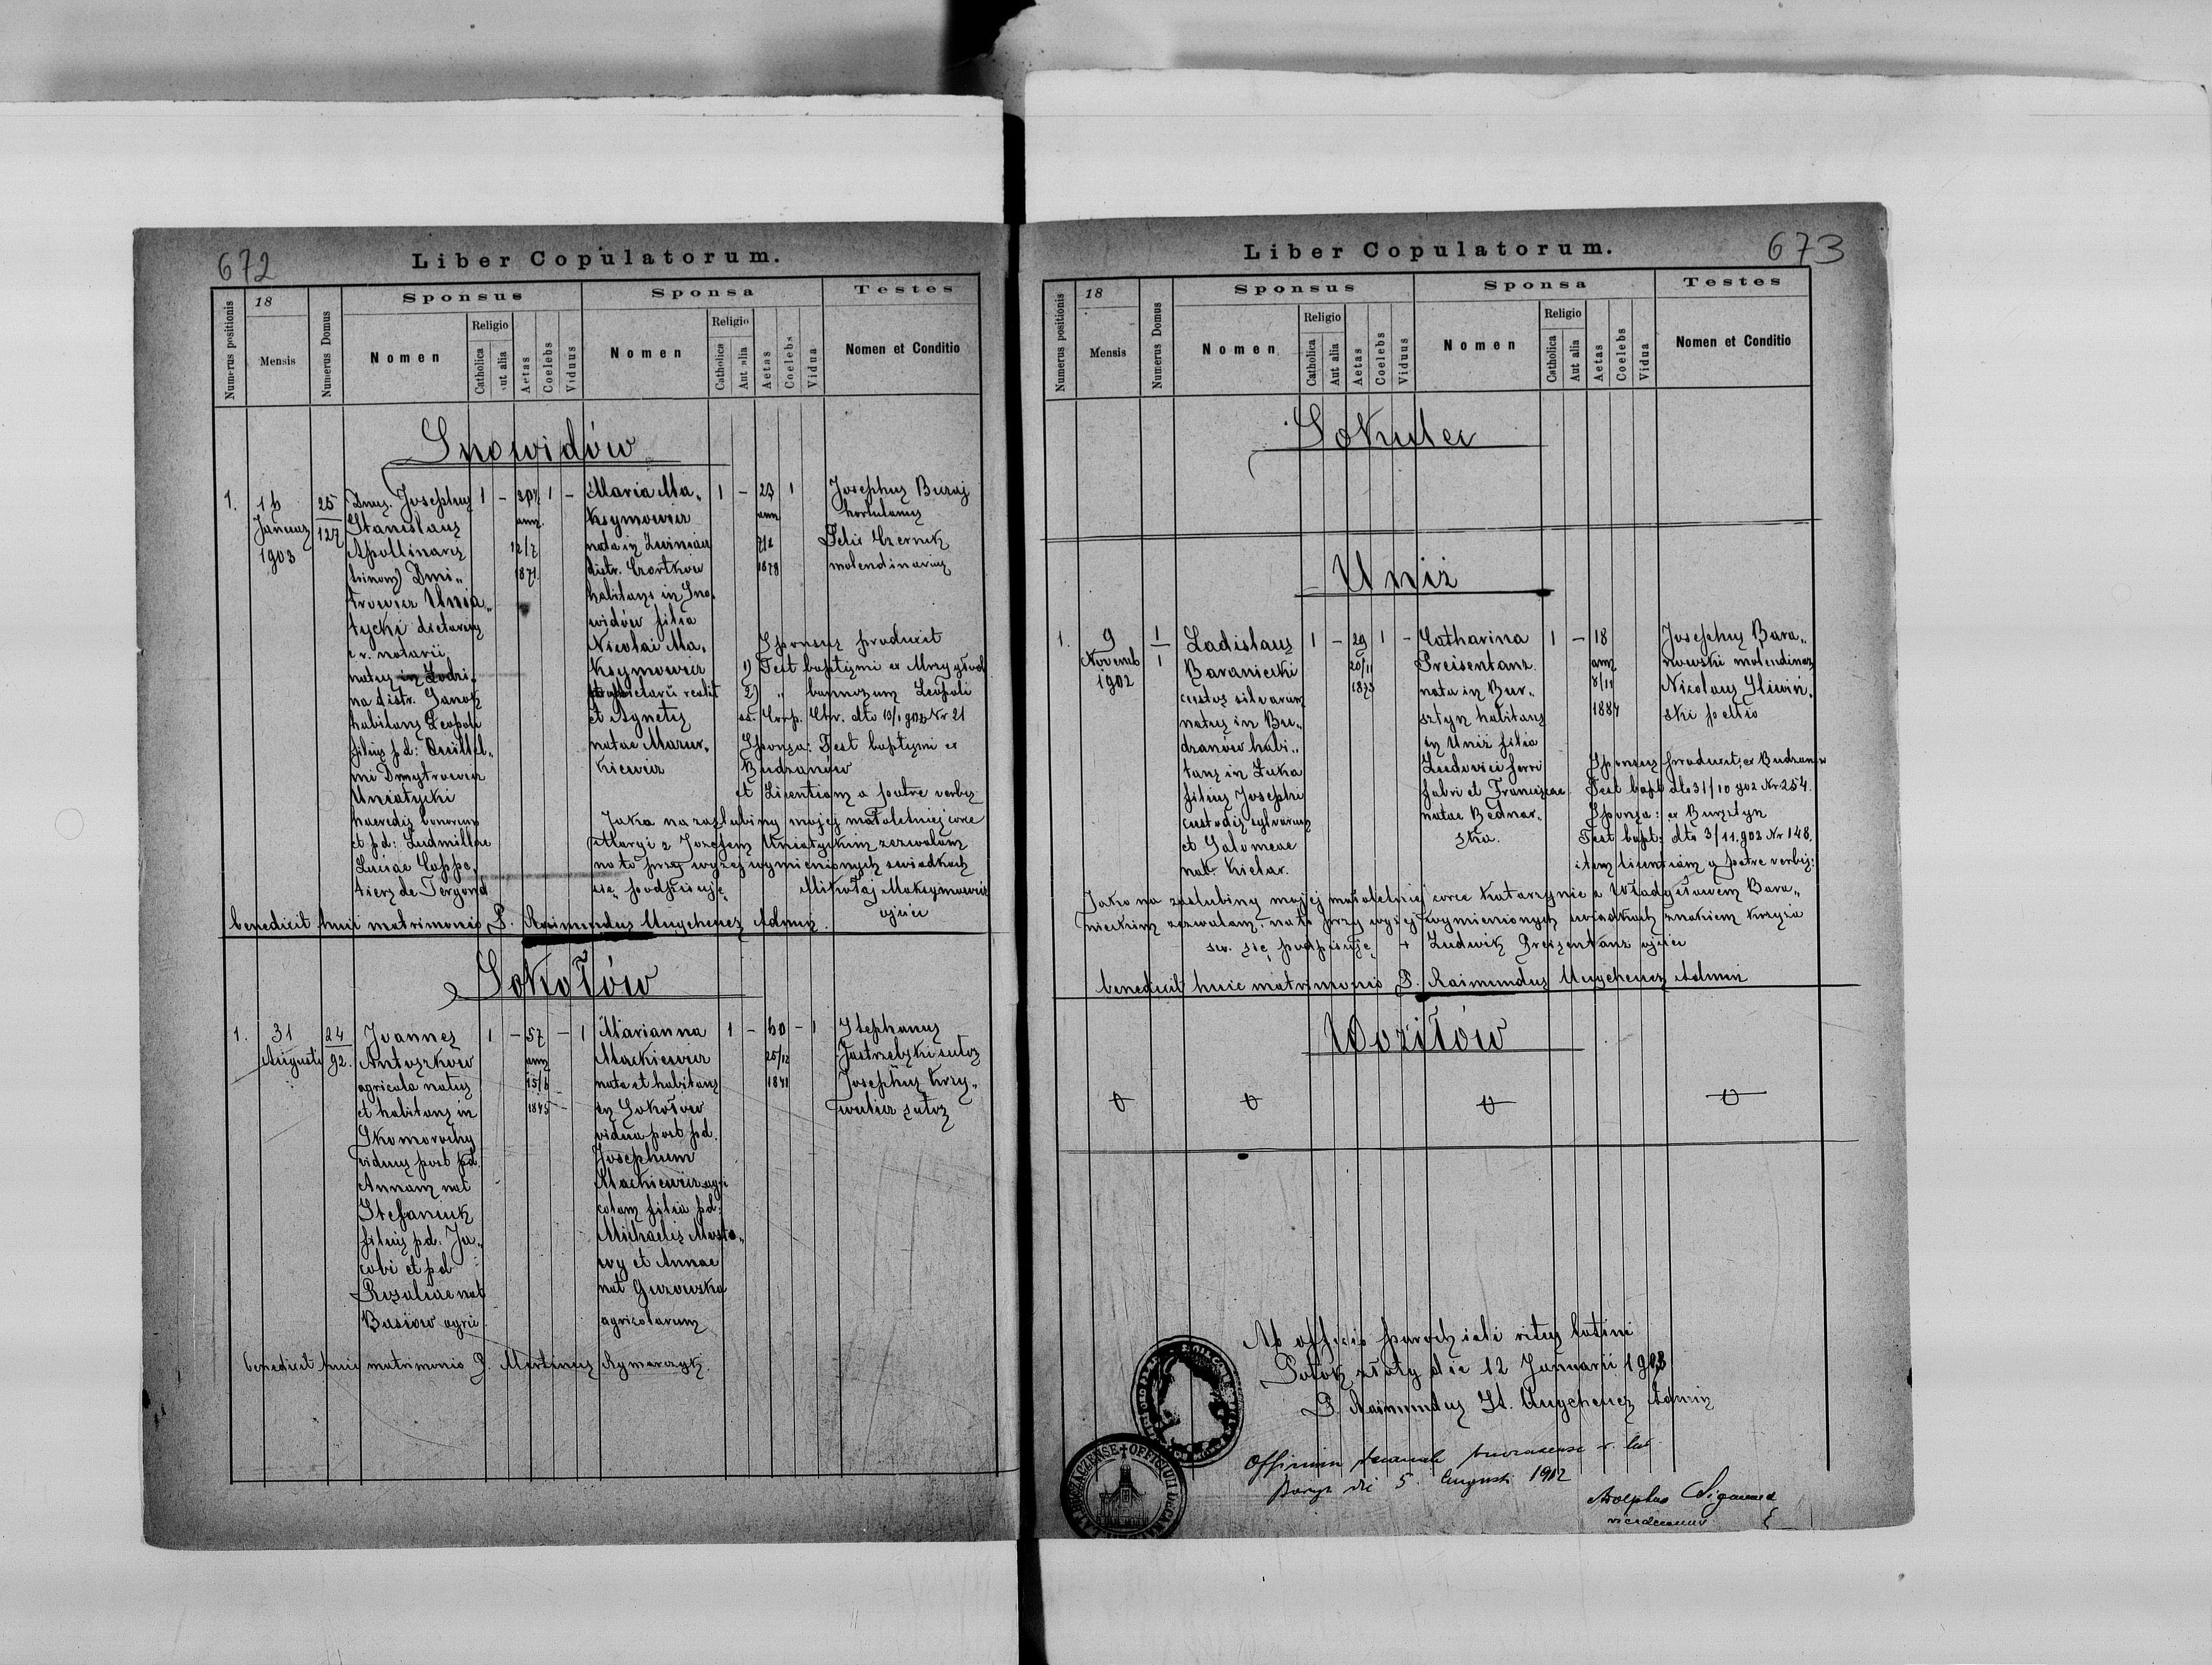 672
Liber Copulatorum.
Numerus positionis
18
Mensis
Numerus Domus
Sponsus
Nomen
Religio
Catholica
aut alia
Aetas
Coelebs
Viduus
Sponsa
Nomen
Religio
Catholica
Aut alia
Aetas
Coelebs
Vidua
Testes
Nomen et Conditio
Snowidów
1.
Januar
1903
25
127
Josephus
Stanislaus
Apollinaris
(trinom) Dmi„
trowicz Unia„
tycki
c. r. notarii
natus
na distr. Sanok
habitans Leopoli
filius pd:
mi Dmytrowicz
Uniatycki
haeredis bonorum
et pd: Ludmillae
Luisae
1 -
ann.
12/7
1871
1 -
Maria Ma„
ksymowicz
nata in
distr. Czortkow
habitans in Sno„
widów filia
Nicolai Ma„
ksymowicz
et Agnetis
natae Mazur„
kiewicz
1 -
ann
1878
1
Josephus Buraj
hortulanus
Felix Czernik
molendinarius
Sponsus producit
1) Test baptismi ex
2) " bannorum Leopoli
Sponsa: Test baptismi ex
Budzanów
et Licentiam a patre verbis
Jako na zaślubiny mojej małoletniej córce
Maryi z Józefem Uniatyckim zezwalam
na to przy wyżej wymienionych świadkach
się podpisuję Mikołaj Maksymowicz
ojciec
benedicit huic matrimonio P. Raimundus Admin.
Sokołów
1.
31
Augusti
24
92.
Joannes
Antoszków
agricola natus
et habitans in
Skomorochy
viduus post pd.
Annam nat
Stefaniuk
filius pd. Ja„
cobi et pd
Rosaliae nat
agric
1 - 57 - 1
ann
15/6
1845
Marianna
Mackiewicz
nata et habitans
in Sokołów
vidua post pd.
Josephum
Mackiewicz agri
colam filia pd:
Michaelis
et Annae
nat
agricolarum
1 - 60 - 1
25/12
1841
Stephanus
Jastrzebski sutor
Josephus Krzy„
sutor
benedicit huic matrimonio P. Martinus Rymarczyk.
673
Liber Copulatorum.
Numerus positionis
18
Mensis
Numerus Domus
Sponsus
Nomen
Religio
Catholica
Aut alia
Aetas
Coelebs
Viduus
Sponsa
Nomen
Religio
Catholica
Aut alia
Aetas
Coelebs
Vidua
Testes
Nomen et Conditio
Sokulec
Uniż
1.
9
Novemb
1902
1
1
Ladislaus
Baraniecki
custos silvarum
natus in Bu„
dzanów habi„
tans in Łuka
filius Josephi
custodis sylvarum
et Salomeae
nat. Kielar.
1 - 29 1 -
20/11
1873
Catharina
Preisentanz
nata in Bur„
sztyn habitans
in Uniż filia
Ludovici ferri
fabri et Franciscae
natae Bednar„
ska.
1 - 18
ann
8/11
1884
Josephus Bara„
nowski molendinar
Nicolaus Śliwiń„
ski pellio
Sponsus producit ex Budzanów
Test bapt dto 31/10 902 Nr 254.
Sponsa: ex Bursztyn
Test bapt: dto 3/11.902 Nr 148.
item licentiam a patre verbis:
Jako na zaślubiny mojej małoletniej córce Katarzynie z Władysławem Bara„
nieckim zezwalam, na to przy wyżej wymienionych świadkach znakiem krzyża
św. się podpisuję + Ludwik Preisentanz ojciec
benedicit huic matrimonio P. Raimundus Admin
Woziłów
Ab officio parochiali ritus latini
Potok złoty die 12 Januarii 1903
P. Raimundus St. Admin
Officium decanale r. lat.
die 5. Augusti 1912
Adolphus
vicedecanus